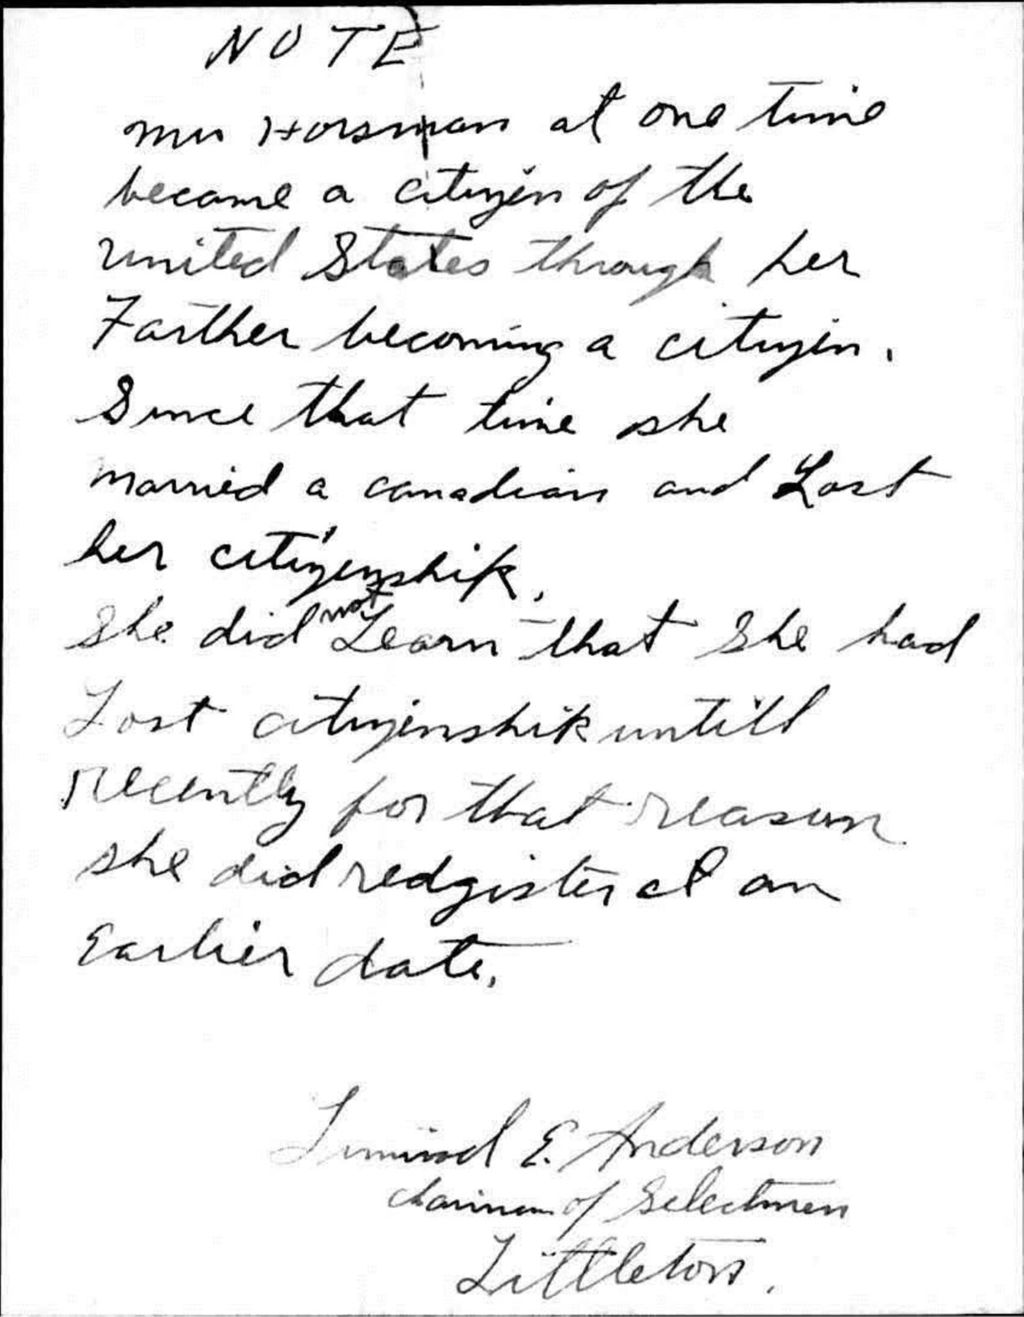 NOTE
Mrs Horsman at one time
became a citizen of the
United States through her
Farther becoming a citizen.
Since that time she
married a canadian and Lost
her citizenship.
She did not Learn that She had
Lost citizenship untill
recently for that reason
she did redgister at an
Earlier date.
E. Anderson
chairman of Selectmen
Littleton.